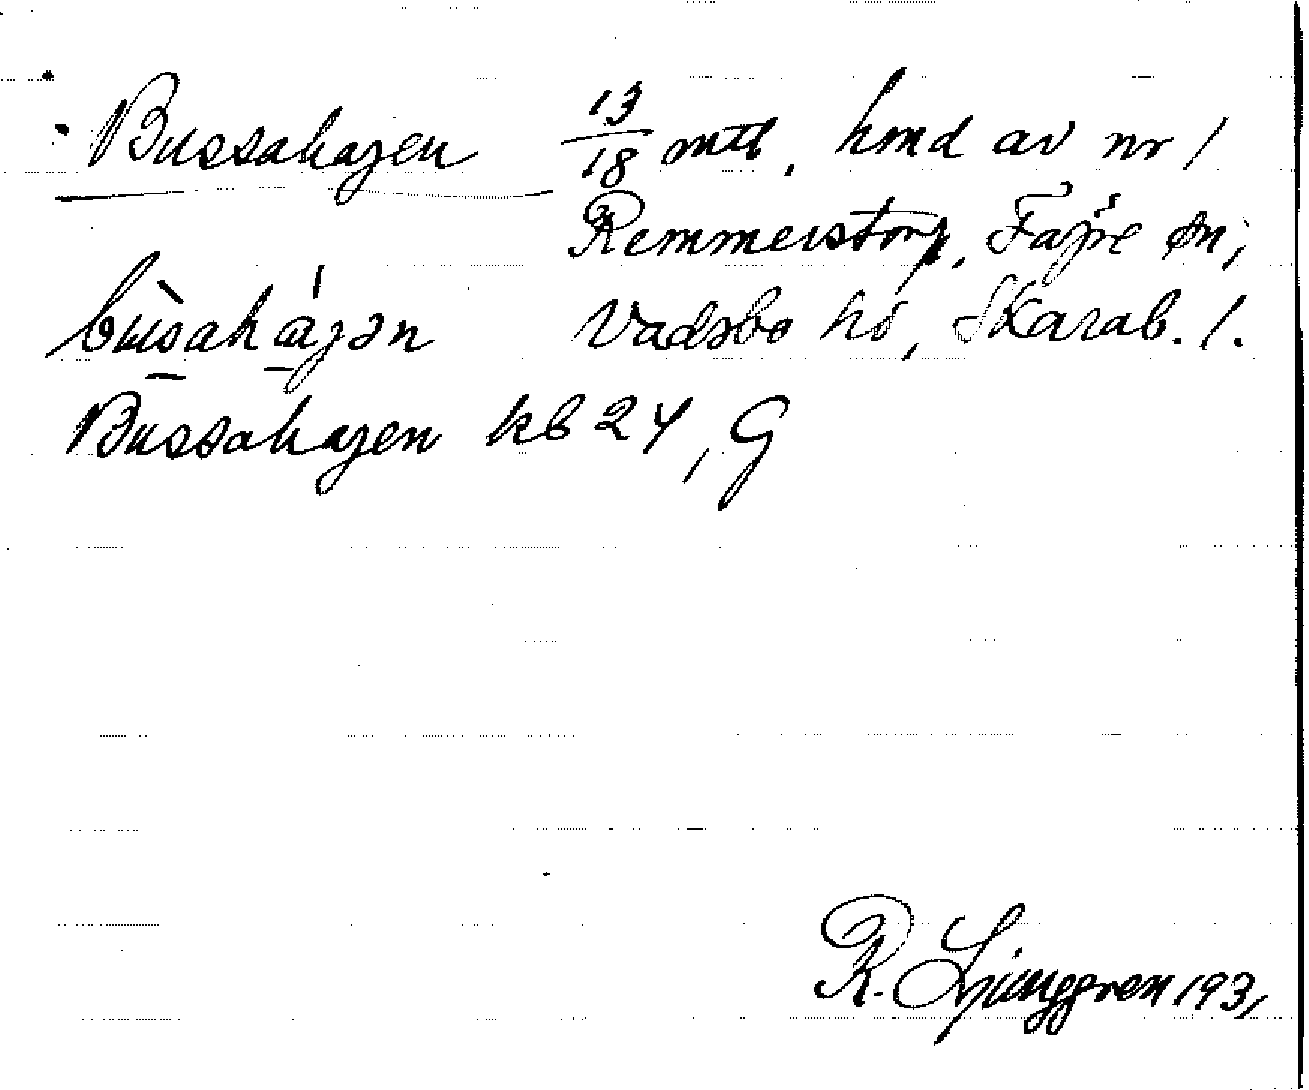 Bussahagen 13/18 mtl, hmd av nr 1
Remmerstorp, Fägre sn,
bùsahágən Vadsbo hd, Skarab. l.
Bussahagen kb 24, G
R. Ljunggren 193,